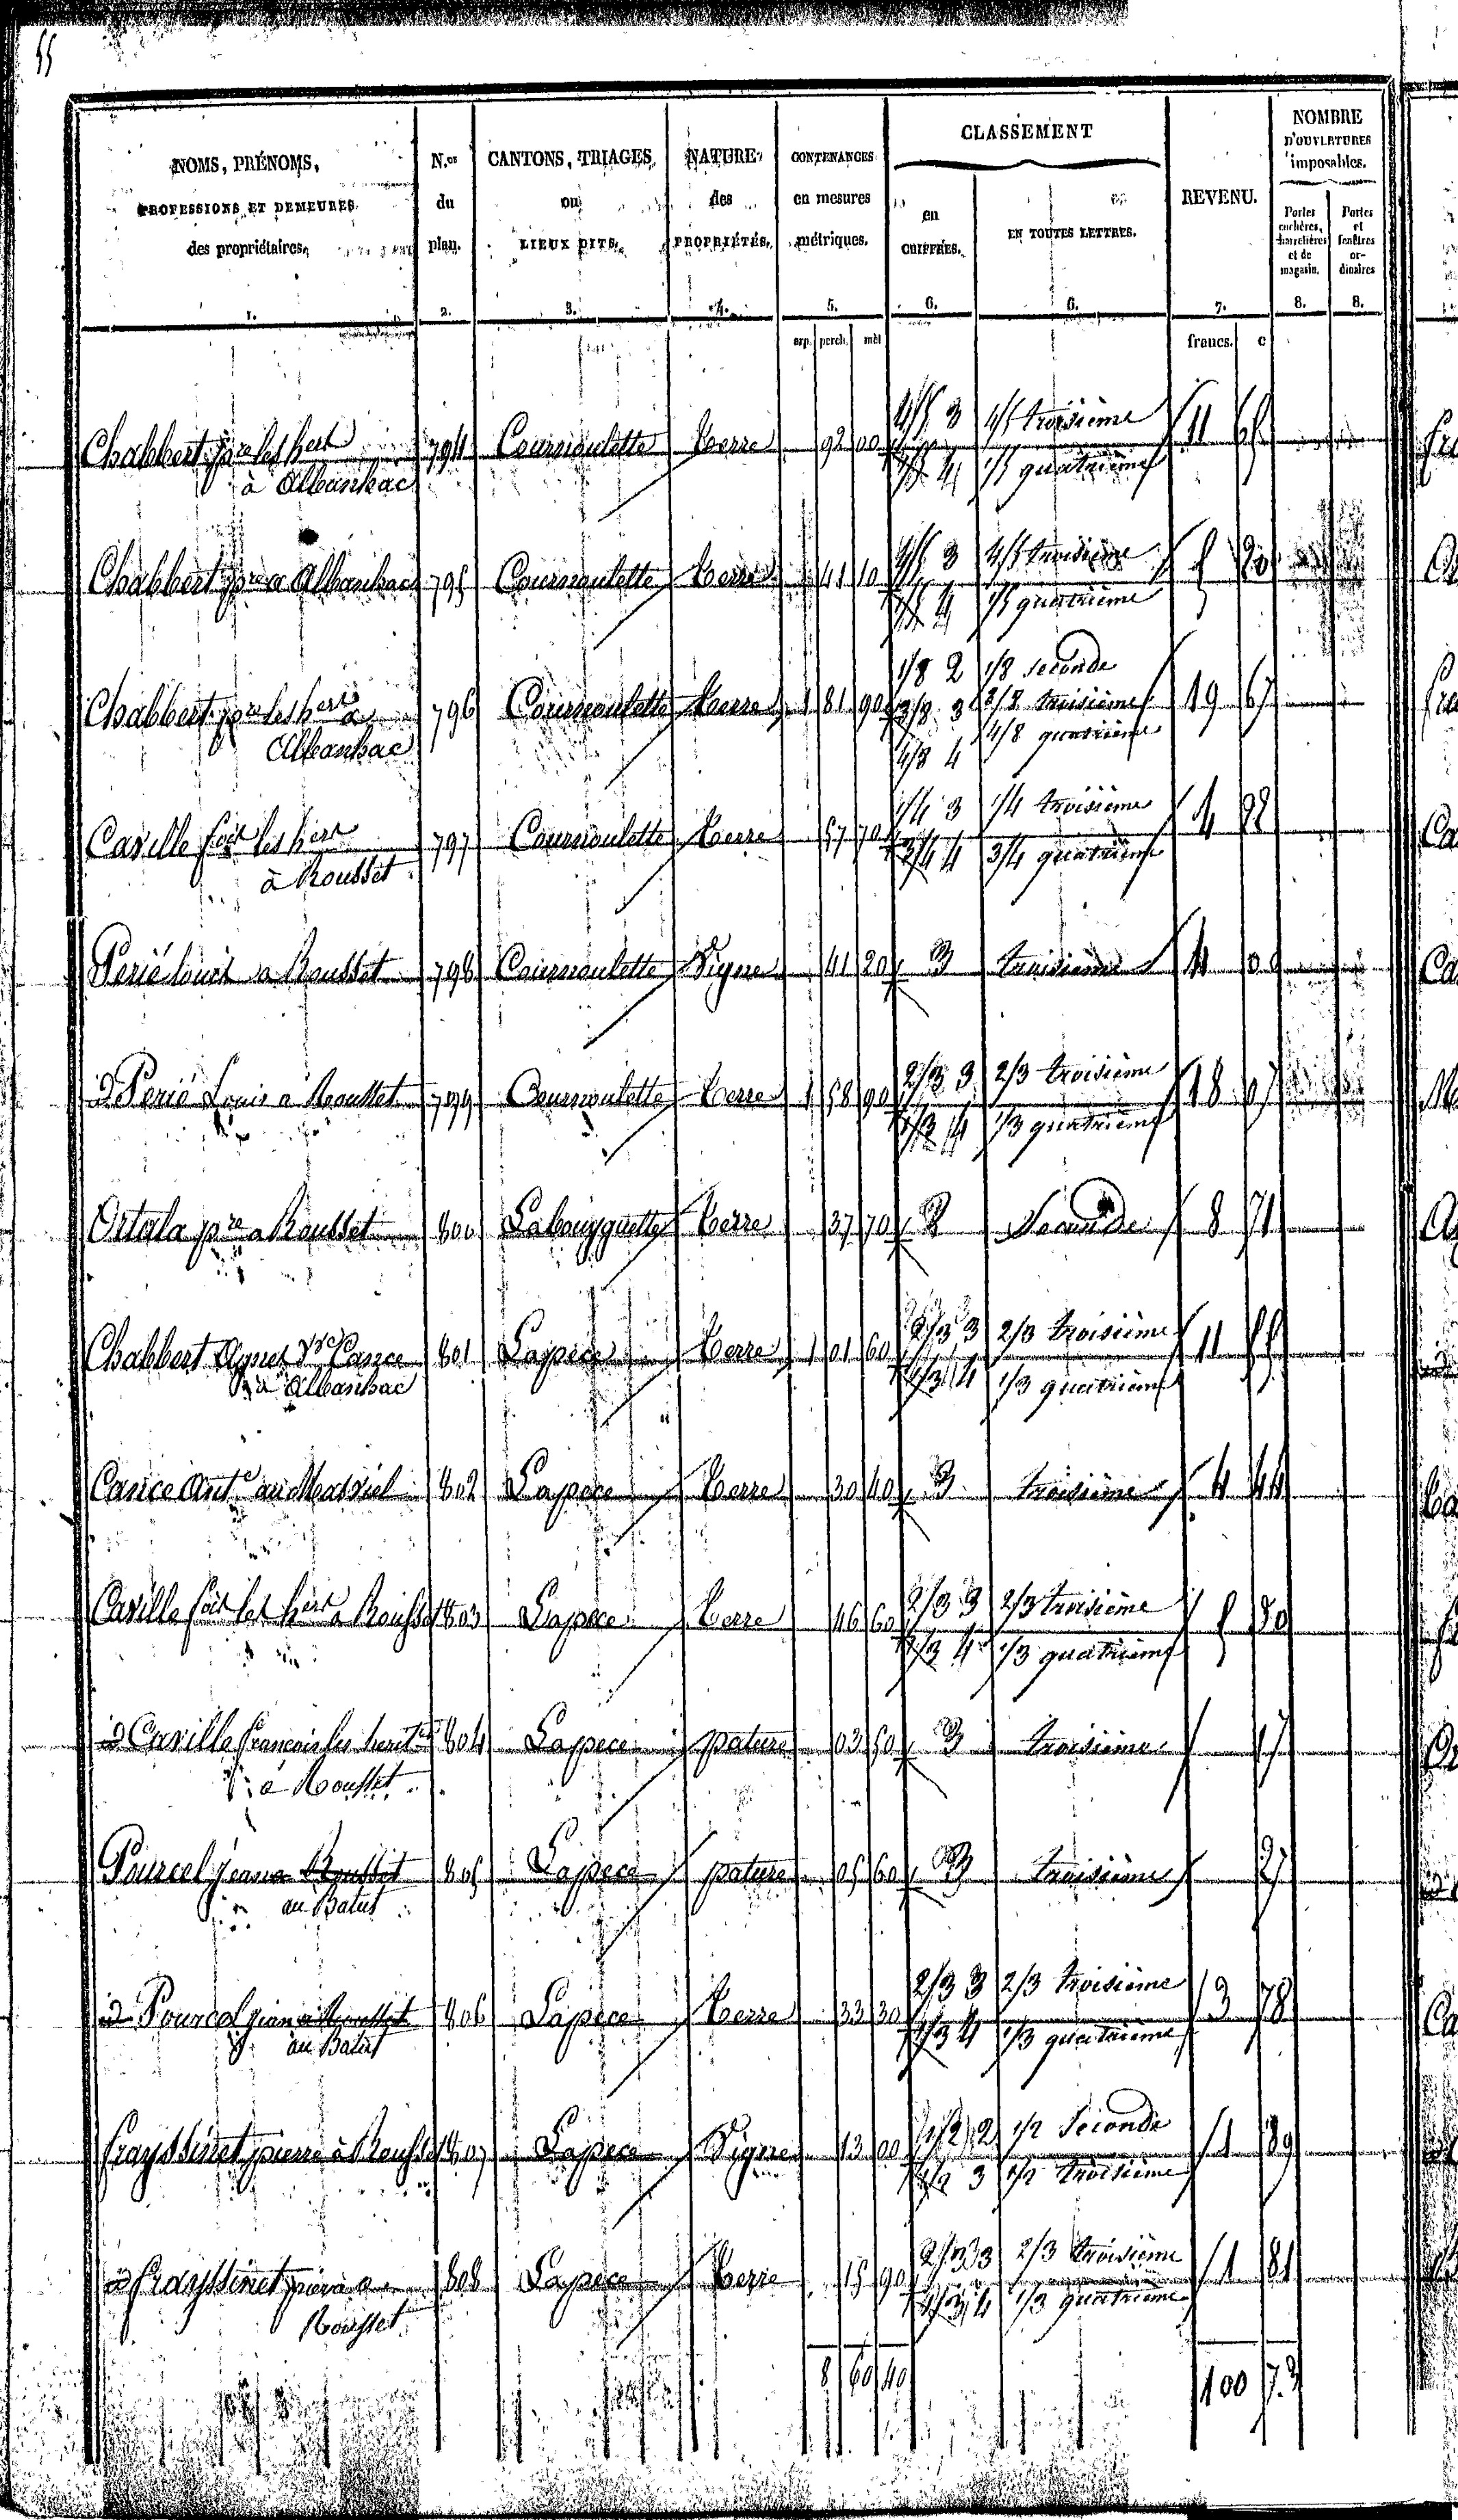 55
NOMS, PRÉNOMS, PROFESSIONS ET DEMEURES des propriétaires. 1.
N.os du plan. 2.
CANTONS, TRIAGES ou LIEUX DITS. 3.
NATURE des PROPRIÉTÉS. 4.
CONTENANCES en mesures métriques. 5.
CLASSEMENT
en CHIFFRES. 6.
EN TOUTES LETTRES. 6.
REVENU. 7.
NOMBRE D'OUVERTURES imposables.
Portes cochères, charretières et de magasin. 8.
Portes et fenêtres ordinaires 8.
arp. perch. mèt francs. c
Chabbert pre les hers 794 Cournoulette terre 92 00 4/5 3 4/5 troisième 11
à Albanhac 1/5 4 1/5 quatrième
Chabbert pre a Albanhac 795 Cournoulette terre 41 10 4/5 3 4/5 troisième 5 20
1/5 4 1/5 quatrième
1/8 2 1/8 seconde
Chabbert pre les hers a 796 Cournoulette terre 1 81 90 3/8 3 3/8 troisième 19 67
Albanhac 4/8 4 4/8 quatrième
Caville fois les hers 797 Cournoulette terre 57 70 1/4 3 1/4 troisième
à Rousset 3/4 4 3/4 quatrième
Perié louis a Rousset 798 Cournoulette Vigne 41 20 3 troisième 4
d Perié Louis a Rousset 799 Cournoulette terre 1 58 90 2/3 3 2/3 troisième 18 07
1/3 4 1/3 quatrième
Ortala pre a Rousset 800 Labouyguette terre 37 70 2 Seconde 8 71
Chabbert Agnes Vve Cance 801 Lapece terre 1 01 60 2/3 3 2/3 troisième 11 55
à Albanhac 1/3 4 1/3 quatrième
Cance Ante au 802 Lapece terre 30 40 3 troisième 4 44
Caville fois les hers a Rousset 803 Lapece terre 46 60 2/3 3 2/3 troisième 5 30
1/3 4 1/3 quatrième
d Caville francois les herit 804 Lapece pature 03 50 3 troisième 17
à Rousset
Pourcel jean a Rousset 805 Lapece pature 05 60 3 troisième 27
au Batut
d Pourcel jean a Rousset 806 Lapece terre 33 30 2/3 3 2/3 troisième 3 78
au Batut 1/3 4 1/3 quatrième
frayssinet pierre à Rousset 807 Lapece Vigne 13 00 1/2 2 1/2 Seconde 1 89
1/2 3 1/2 troisième
d frayssinet pierre a 808 Lapece terre 15 90 2/3 3 2/3 troisième 1 81
Rousset 1/3 4 1/3 quatrième
8 60 40 100 73